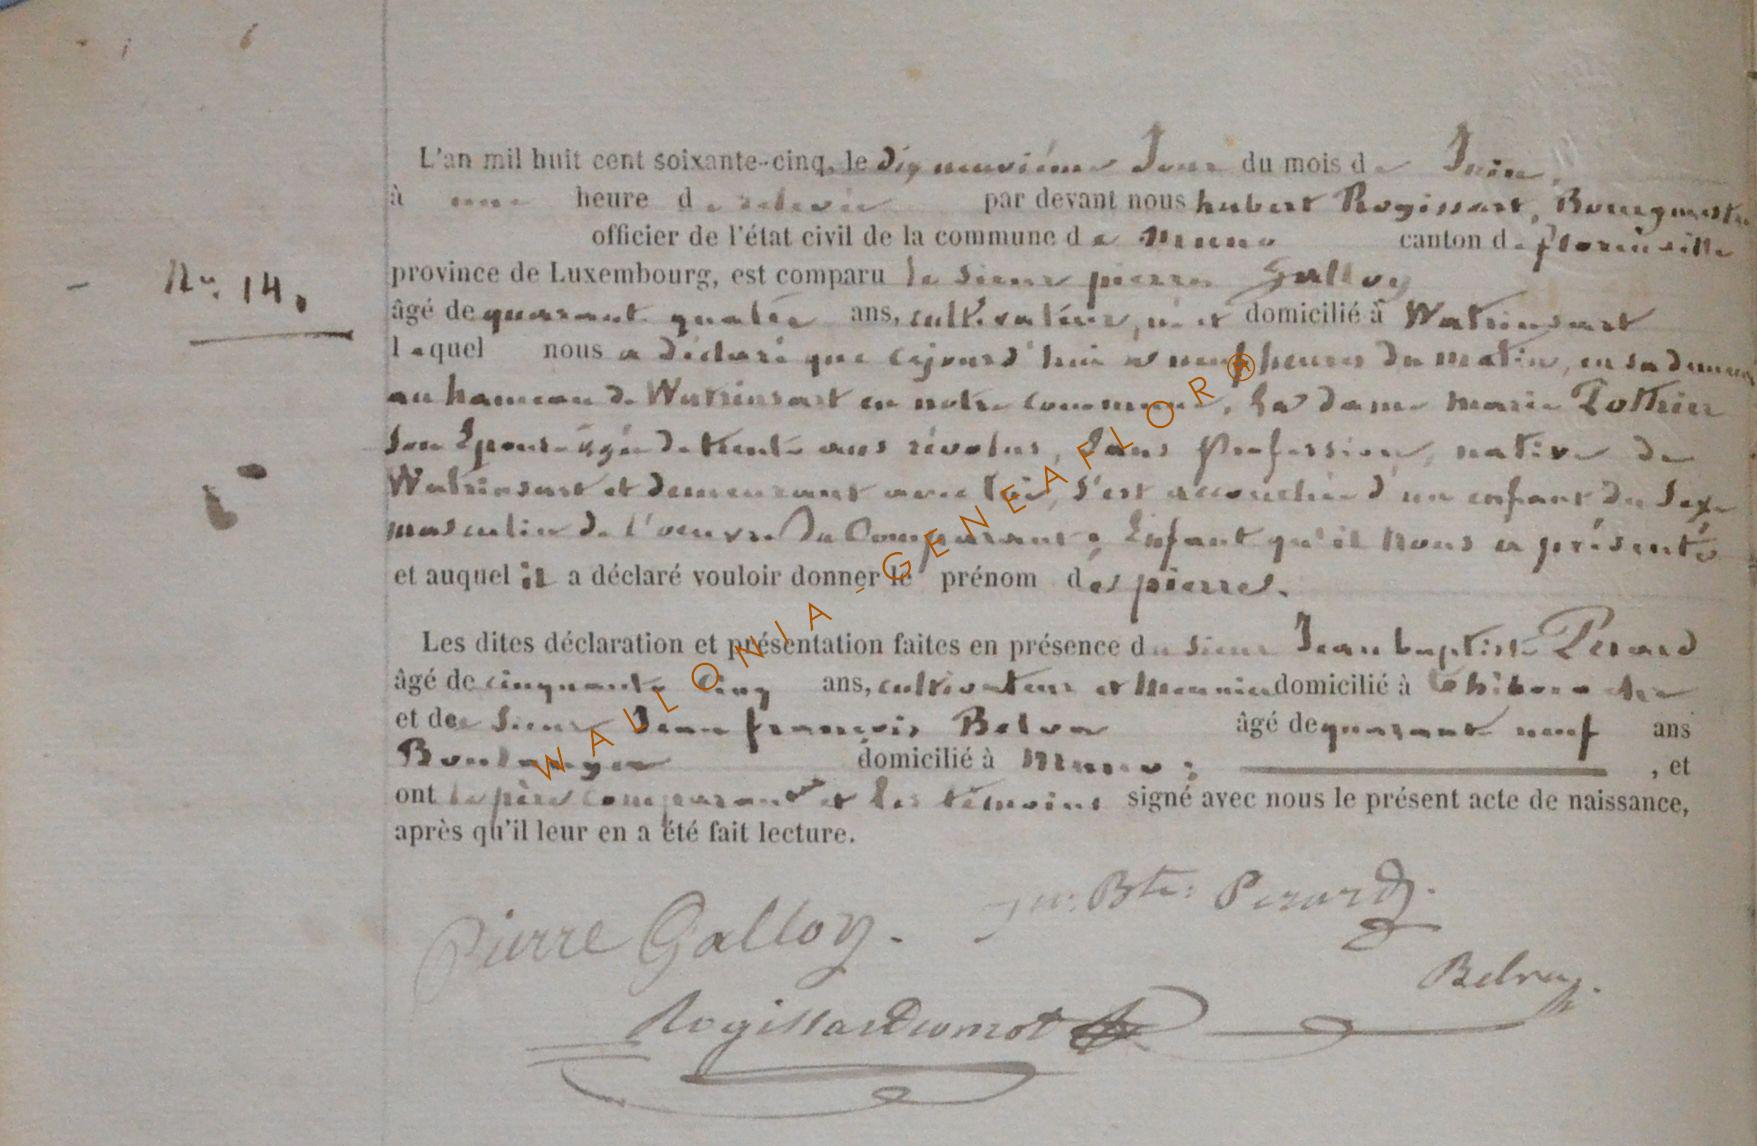 L'an mil huit cent soixante-cinq, le dix neuvième Jour du mois de Juin,
à une heure de relevée par devant nous hubert Rogissart, Bourgmestre
officier de l'état civil de la commune de Muno canton de florenville
Nº. 14.
province de Luxembourg, est comparu le sieur pierre Galloy
âgé de quarant quatre ans, cultivateur, né et domicilié à Watrinsart
lequel nous a déclaré que cejourd'hui à neuf heures du matin, en sa demeure
au hameau de Watrinsart en notre commune, la dame marie Pothier
son Epouse âgée de trente ans révolus, sans profession, native de
Watrinsart et demeurant avec lui, s'est accouchée d'un enfant du sexe
masculin de l'oeuvre du Comparant; Enfant qu'il nous a présenté
et auquel il a déclaré vouloir donner le prénom des pierre.
Les dites déclaration et présentation faites en présence du sieur Jean baptiste Perard
âgé de cinquante cinq ans, cultivateur et Meunier domicilié à
et de sieur Jean françois Belva âgé de quarant neuf ans
Boulanger domicilié à Muno; , et
ont le père comparant et les témoins signé avec nous le présent acte de naissance,
après qu'il leur en a été fait lecture.
Pierre Galloy. Jn. Bte: Perard.
Belva.
Rogissart
WALLONIA - GENEAFLOR®